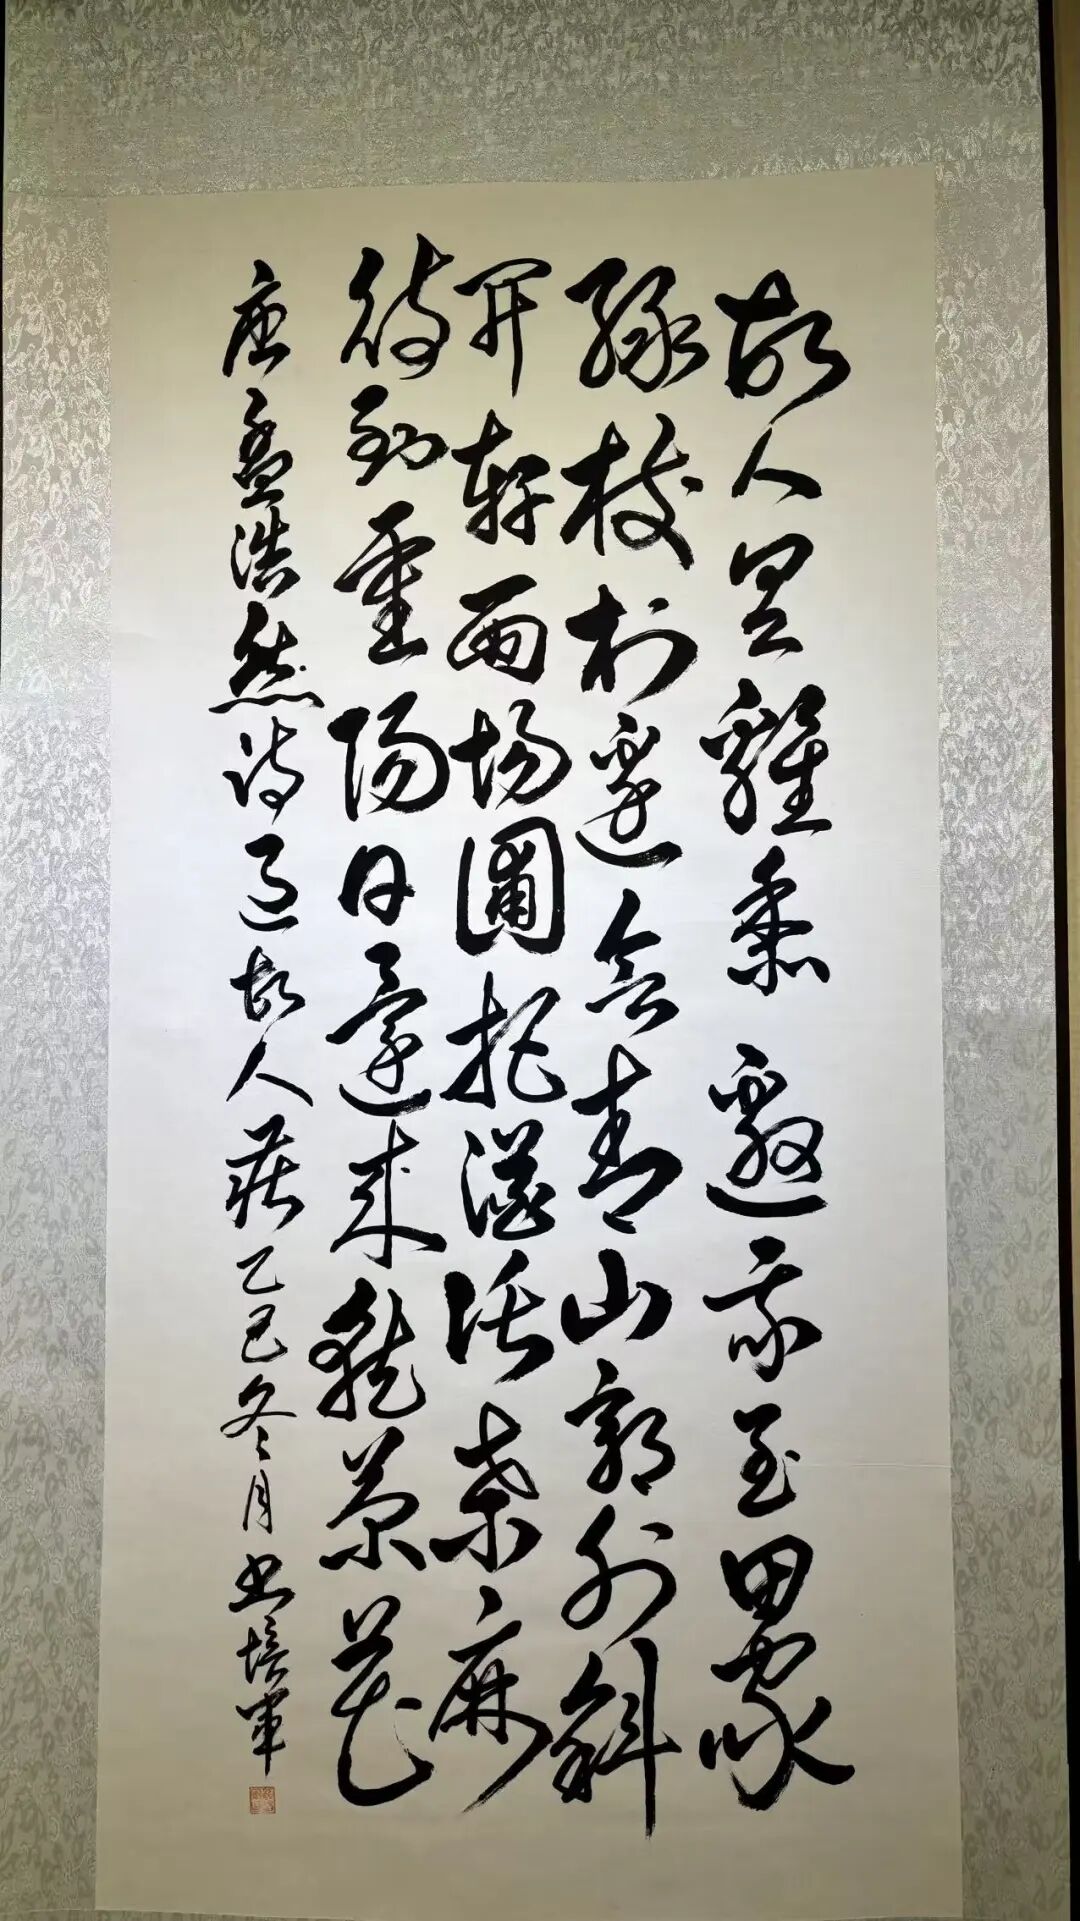 故人具雞黍邀我至田家
綠樹村邊合青山郭外斜
開軒面場圃把酒話桑麻
待到重陽日還來就菊花
唐孟浩然詩過故人莊乙巳冬月書培軍